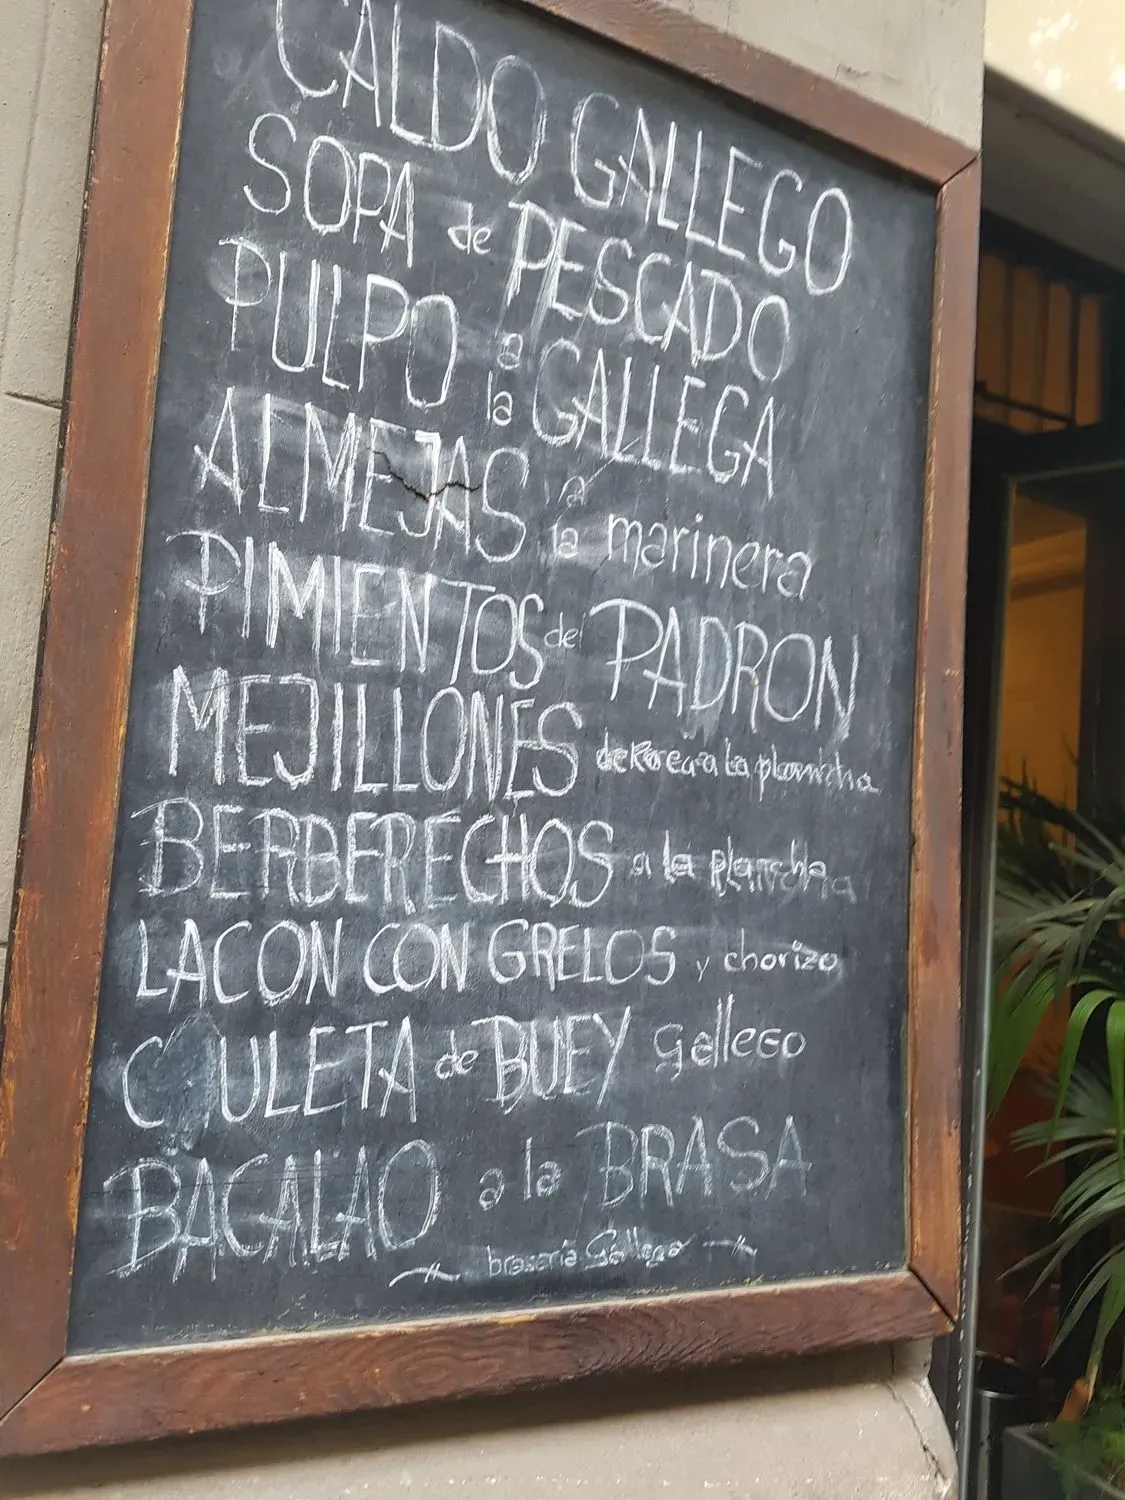 CALDO GALLEGO
SOPA de PESCADO
PULPO a la GALLEGA
ALMEJAS a la marinera
PIMIENTOS del PADRON
MEJILLONES de Roca a la plancha
BERBERECHOS a la plancha
LACON CON GRELOS y chorizo
CHULETA de BUEY Gallego
BACALAO a la BRASA
braseria Gallega